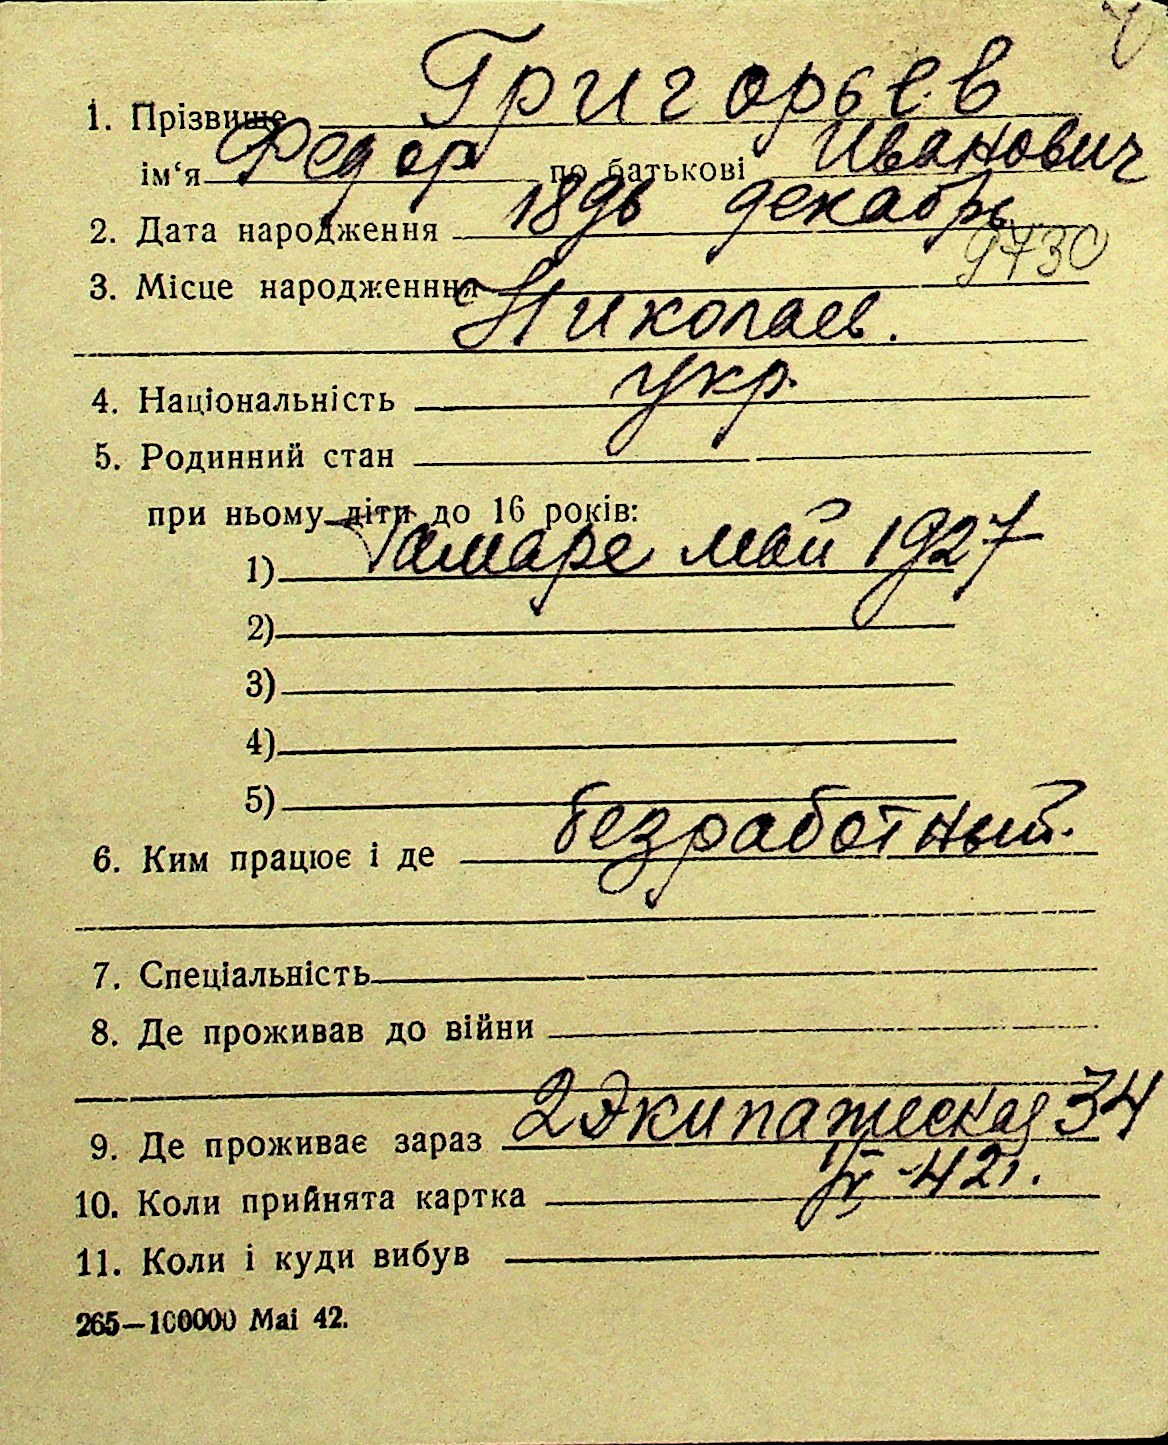 1. Прізвище Григорьев
ім‘я Федор по батькові Иванович
2. Дата народження 1896 декабрь
9730
3. Місце народженння Николаев.
4. Національність укр.
5. Родинний стан
при ньому діти до 16 років:
1) Тамаре май 1927
2)
3)
4)
5)
6. Ким працює і де безработный.
7. Спеціальність
8. Де проживав до війни
9. Де проживає зараз 2 Экипажеская 34
10. Коли прийнята картка 42г.
11. Коли і куди вибув
265—100000 Mai 42.